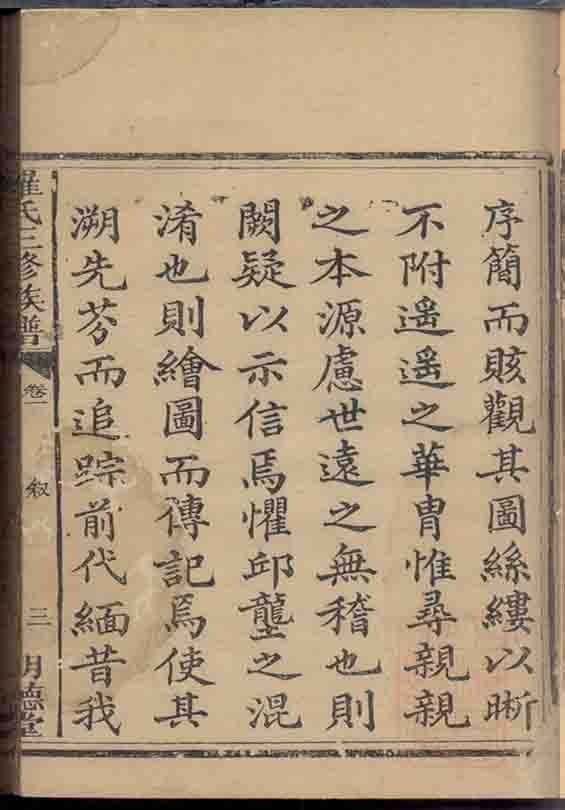 序簡而賅觀其圖絲縷以晰
不附遥遥之華胄惟尋親親
之本源慮世遠之無稽也則
闕疑以示信焉懼邱壟之混
淆也則繪圖而傳記焉使其
溯先芬而追踪前代緬昔我
羅氏三修族譜
卷一
叙
三
明德堂